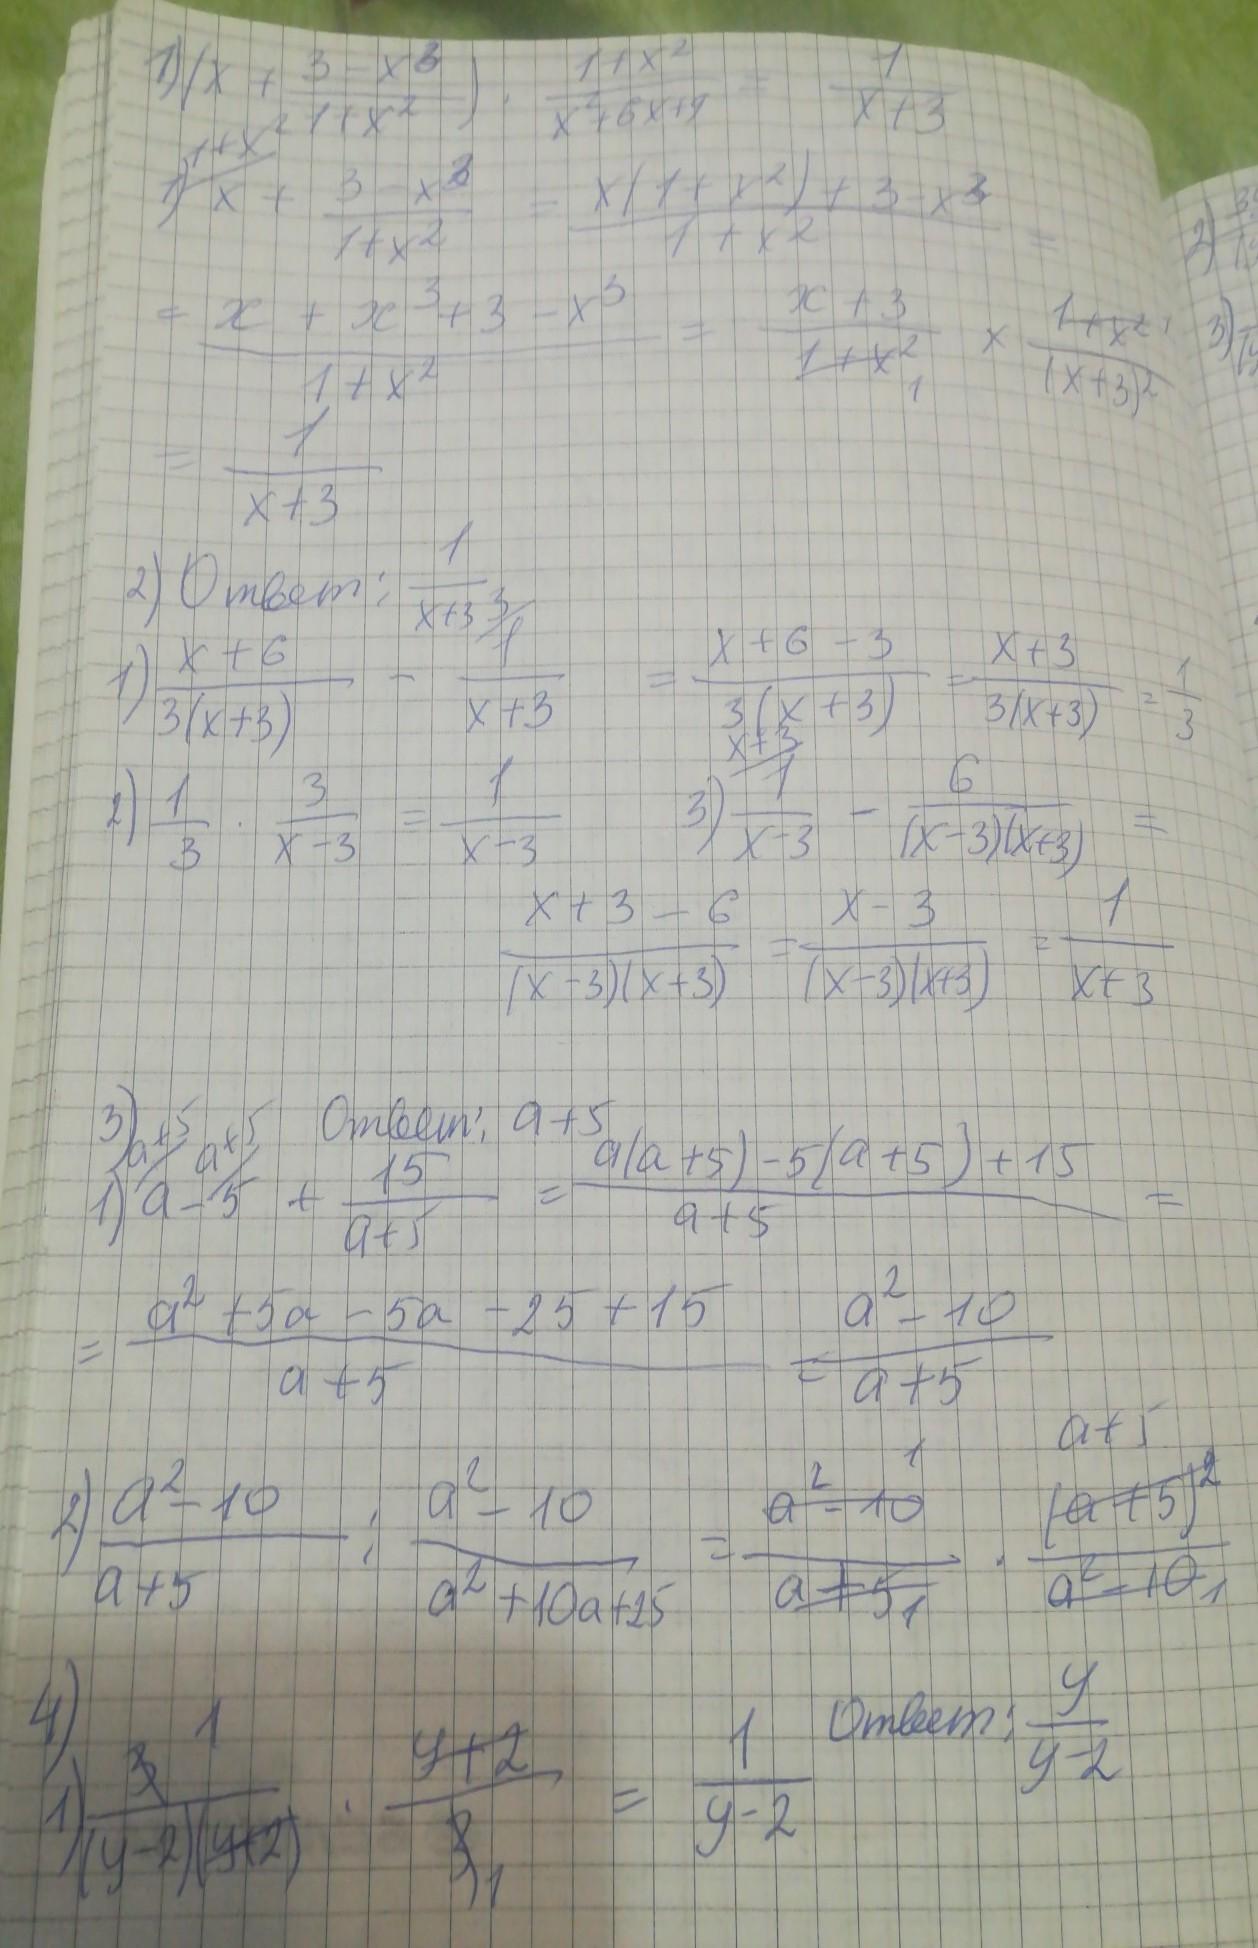 1) (x + (3 - x³)/(1+x²)) · (1+x²)/(x²+6x+9) = 1/(x+3)
1) x^(1+x² + (3 - x³)/(1+x²) = (x(1+x²)+3-x³)/(1+x²) =
= (x + x³+3 -x³)/(1+x²) = (x+3)/(1+x²) 1 × (1+x²)/(x+3)²
= 1/(x+3)
2) Ответ: 1/(x+3)
1) (x+6)/(3(x+3)) - 1^(3/(x+3) = (x+6-3)/(3(x+3)) = (x+3)/(3(x+3)) = 1/3
2) 1/3 · 3/(x-3) = 1/(x-3) 3) 1^(x+3/(x-3) - 6/((x-3)(x+3)) =
(x+3-6)/((x-3)(x+3)) = (x-3)/((x-3)(x+3)) = 1/(x+3)
3) Ответ: a+5
1) a^(a+5 - 5^(a+5 + 15/(a+5) = (a(a+5)-5(a+5)+15)/(a+5) =
= (a²+5a-5a-25+15)/(a+5) = (a²-10)/(a+5)
2) (a²-10)/(a+5) : (a²-10)/(a²+10a+25) = (a²-10) 1/(a+5) 1 · (a+5)² a+5/(a²-10) 1
4) Ответ: y/(y-2)
1) 3 1/((y-2)(y+2)) · (y+2)/3 1 = 1/(y-2)
2)
3)